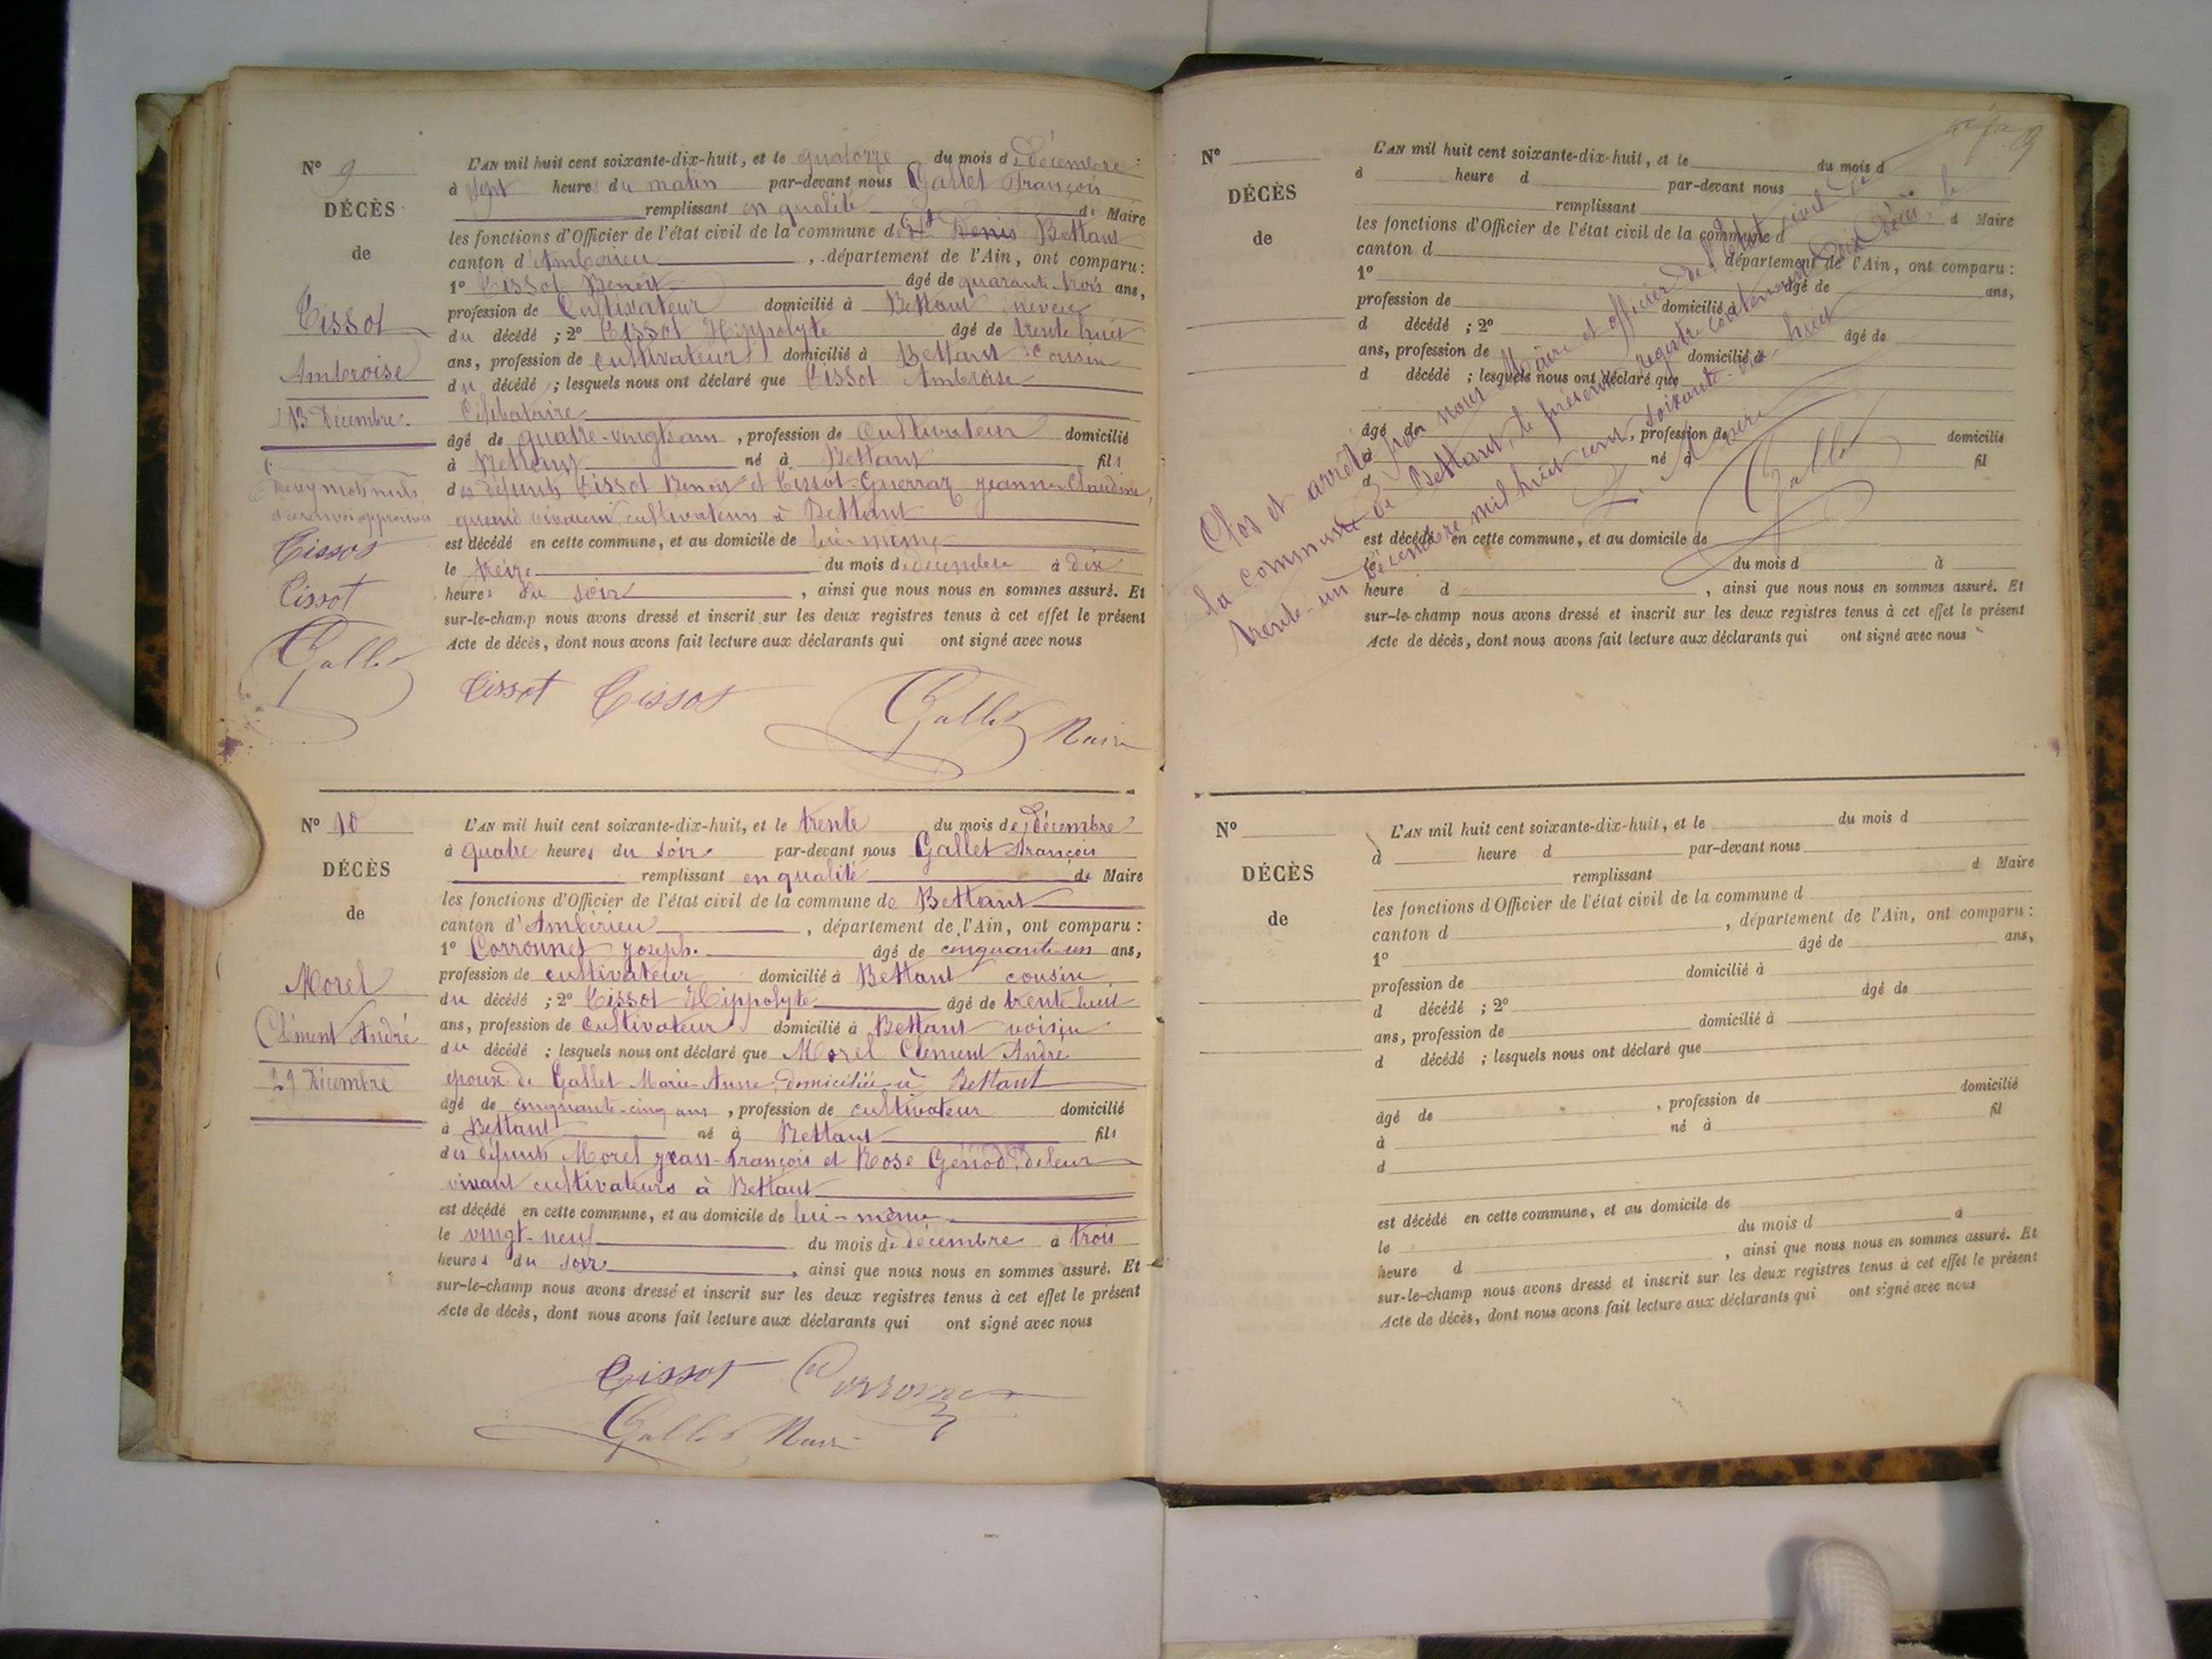 N° 9
DÉCÈS
de
Tissot
Ambroise
13 Décembre.
Deux mots nuls
Tissot
Tissot
Gallet
L'AN mil huit cent soixante-dix-huit, et le quatorze du mois de Décembre
à sept heures du matin par-devant nous Gallet François
remplissant en qualité de Maire
les fonctions d'Officier de l'état civil de la commune de St Denis Bettant
canton d'Ambérieu, département de l'Ain, ont comparu :
1° Tissot Benoit âgé de quarante trois ans,
profession de Cultivateur domicilié à Bettant neveu
du décédé ; 2° Tissot Hippolyte âgé de trente huit
ans, profession de cultivateur domicilié à Bettant cousin
du décédé ; lesquels nous ont déclaré que Tissot Ambroise
Célibataire
âgé de quatre-vingts ans, profession de Cultivateur domicilié
à Bettant né à Bettant fils
des défunts Tissot Benoit et Tissot-Guerraz Jeanne Claudine,
quand vivaient cultivateurs à Bettant
est décédé en cette commune, et au domicile de lui-même
le treize du mois de décembre à dix
heures du soir, ainsi que nous nous en sommes assuré. Et
sur-le-champ nous avons dressé et inscrit sur les deux registres tenus à cet effet le présent
Acte de décès, dont nous avons fait lecture aux déclarants qui ont signé avec nous
Tissot Tissot Gallet Maire
N° 10
DÉCÈS
de
Morel
Clément André
29 Décembre
L'AN mil huit cent soixante-dix-huit, et le trente du mois de Décembre
à quatre heures du soir par-devant nous Gallet François
remplissant en qualité de Maire
les fonctions d'Officier de l'état civil de la commune de Bettant
canton d'Ambérieu, département de l'Ain, ont comparu :
1° Corronnet Joseph. âgé de cinquante-un ans,
profession de cultivateur domicilié à Bettant cousin
du décédé ; 2° Tissot Hippolyte âgé de trente huit
ans, profession de cultivateur domicilié à Bettant voisin
du décédé ; lesquels nous ont déclaré que Morel Clément André
époux de Gallet Marie-Anne, domiciliée à Bettant
âgé de cinquante-cinq ans, profession de cultivateur domicilié
à Bettant né à Bettant fils
des défunts Morel Jean-François et Rose Genod, de leur
vivant cultivateurs à Bettant
est décédé en cette commune, et au domicile de lui-même
le vingt-neuf du mois de décembre à trois
heures du soir, ainsi que nous nous en sommes assuré. Et
sur-le-champ nous avons dressé et inscrit sur les deux registres tenus à cet effet le présent
Acte de décès, dont nous avons fait lecture aux déclarants qui ont signé avec nous
Tissot Corronnet
Gallet Maire
N°
DÉCÈS
de
L'AN mil huit cent soixante-dix-huit, et le du mois d
à heure d par-devant nous
remplissant d Maire
les fonctions d'Officier de l'état civil de la commune d
canton d département de l'Ain, ont comparu :
1° âgé de ans,
profession de domicilié à
d décédé ; 2° âgé de
ans, profession de domicilié à
d décédé ; lesquels nous ont déclaré que
âgé de , profession de domicilié
à né à fil
d
est décédé en cette commune, et au domicile de
le du mois d à
heure d , ainsi que nous nous en sommes assuré. Et
sur-le-champ nous avons dressé et inscrit sur les deux registres tenus à cet effet le présent
Acte de décès, dont nous avons fait lecture aux déclarants qui ont signé avec nous
Clos et arrêté par nous Maire et officier de l'état civil de
la commune de Bettant, le présent registre contenant dix décès, le
trente-un Décembre mil huit cent soixante-dix-huit
Le Maire
Gallet
N°
DÉCÈS
de
L'AN mil huit cent soixante-dix-huit, et le du mois d
à heure d par-devant nous
remplissant d Maire
les fonctions d'Officier de l'état civil de la commune d
canton d , département de l'Ain, ont comparu :
1° âgé de ans,
profession de domicilié à
d décédé ; 2° âgé de
ans, profession de domicilié à
d décédé ; lesquels nous ont déclaré que
âgé de , profession de domicilié
à né à fil
d
est décédé en cette commune, et au domicile de
le du mois d à
heure d , ainsi que nous nous en sommes assuré. Et
sur-le-champ nous avons dressé et inscrit sur les deux registres tenus à cet effet le présent
Acte de décès, dont nous avons fait lecture aux déclarants qui ont signé avec nous